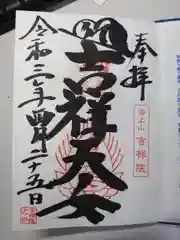 奉拝
吉祥天
海上山 吉祥院
令和三年四月二十五日